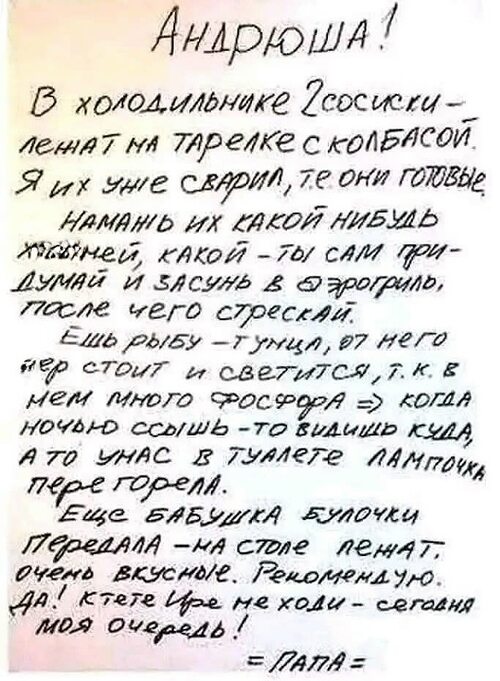 Андрюша!
В холодильнике 2 сосиски -
лежат на тарелке с колбасой.
Я их уже сварил, т.е они готовые.
Намажь их какой нибудь
хренью, какой - ты сам при-
думай и засунь в аэрогриль,
после чего стрескай.
Ешь рыбу - тунца, от него
хер стоит и светится, т.к. в
нем много фосфора => когда
ночью ссышь - то видишь куда,
а то унас в туалете лампочка
перегорела.
Еще бабушка булочки
передала - на столе лежат.
очень вкусные. Рекомендую.
Да! к тете Ире не ходи - сегодня
моя очередь!
= Папа =